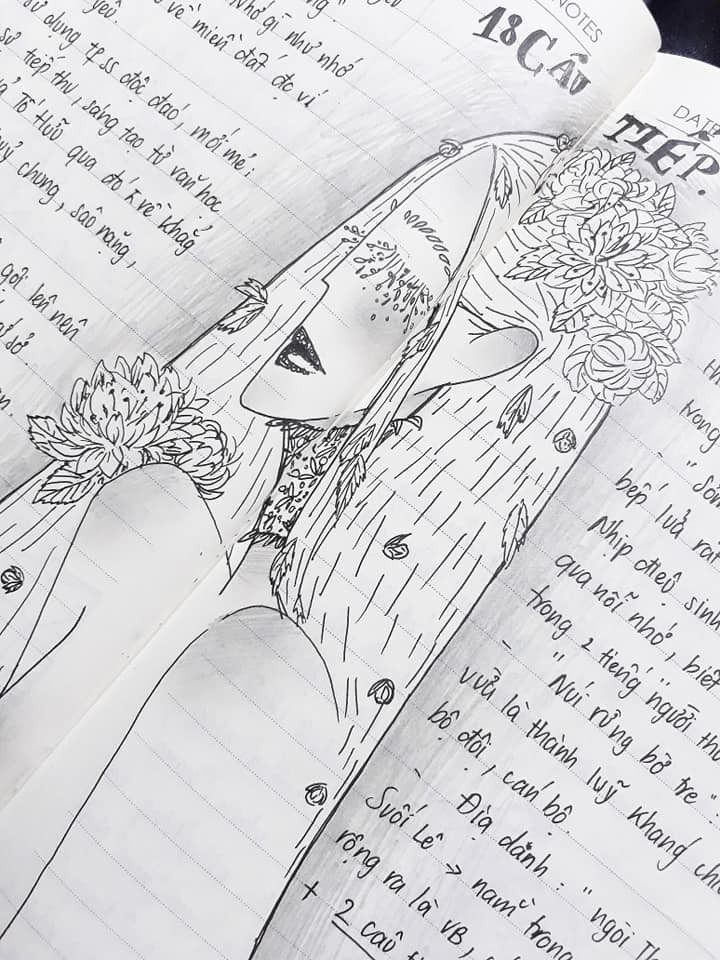 yêu
Nhớ gì như nhớ
về miền đất đc ví
sử dụng tp ss độc đáo, mới mẻ;
sự tiếp thu, sáng tạo từ văn học
Tố Hữu qua đó k về khẳg
chung, sâu nặng,
gợi lên nên
sở
NOTES
18 CÂU
DAT
TIẾP.
trong
- "Sớ
bếp lửa
Nhịp điệu sinh
qua nỗi nhớ, biết
trong 2 tiếng "người thư
- "Núi rừng bờ tre"
vừa là thành luỹ kháng chi
bộ đội, cán bộ.
- Địa danh: "ngòi Th
Suối Lê → nằm trong
rộng ra là VB,
+ 2 câu